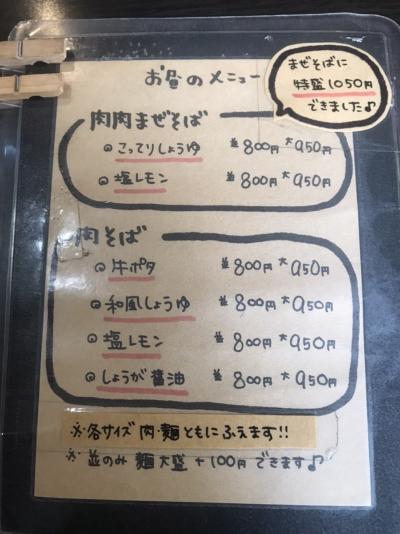 お昼のメニュー
まぜそばに
特盛1050円
できました♪
肉肉まぜそば
◎こってりしょうゆ 並800円 大950円
◎塩レモン 並800円 大950円
肉そば
◎牛ポタ 並800円 大950円
◎和風しょうゆ 並800円 大950円
◎塩レモン 並800円 大950円
◎しょうが醤油 並800円 大950円
※各サイズ肉・麺ともにふえます!!
※並のみ 麺大盛+100円できます♪